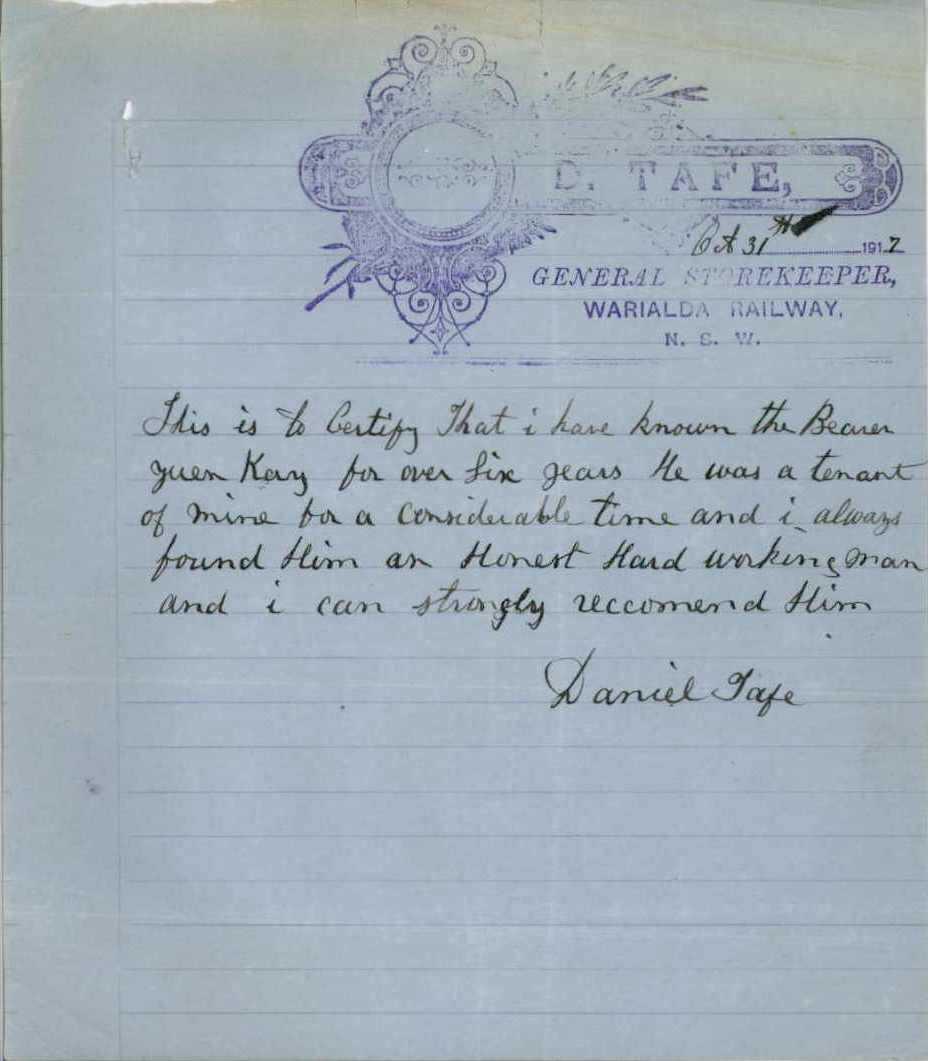 D. TAFE,
Oct 31st 1917
GENERAL STOREKEEPER,
WARIALDA RAILWAY,
N. S. W.
This is to Certify That i have known the Bearer
yuen Kay for over Six years He was a tenant
of mine for a considerable time and i always
found Him an Honest Hard working man
and i can strongly reccomend Him
Daniel Tafe